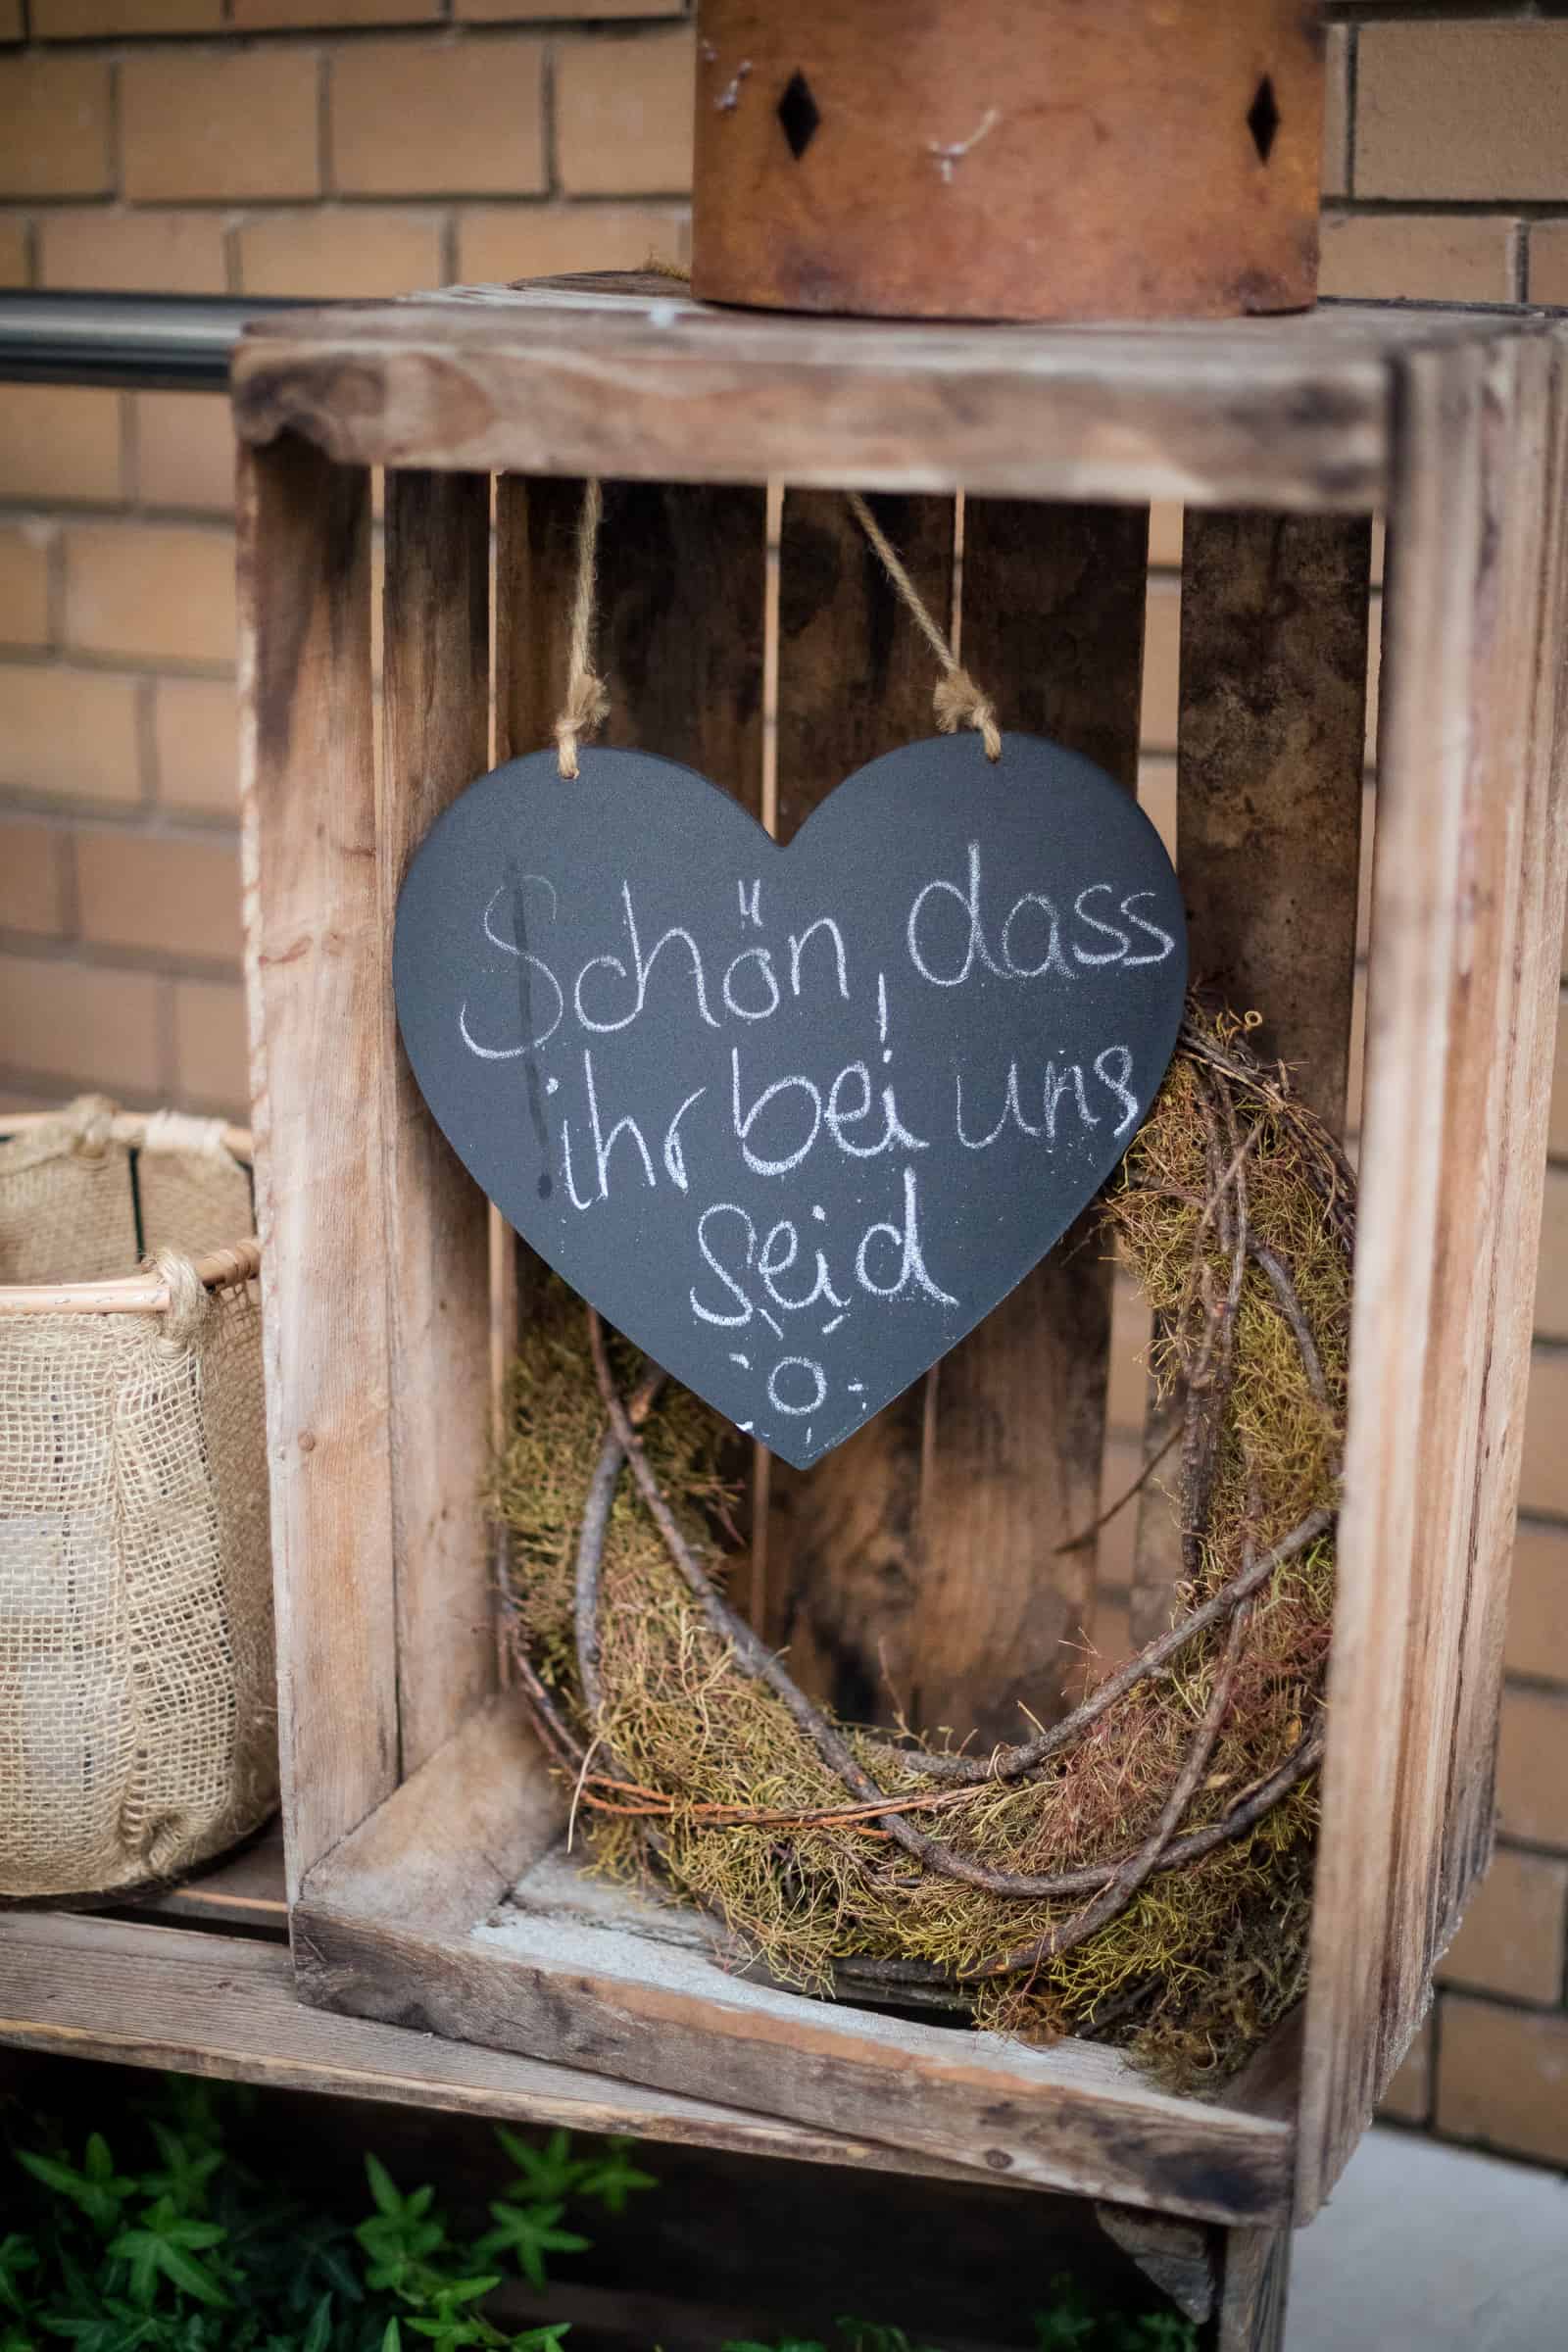 Schön, dass
ihr bei uns
seid